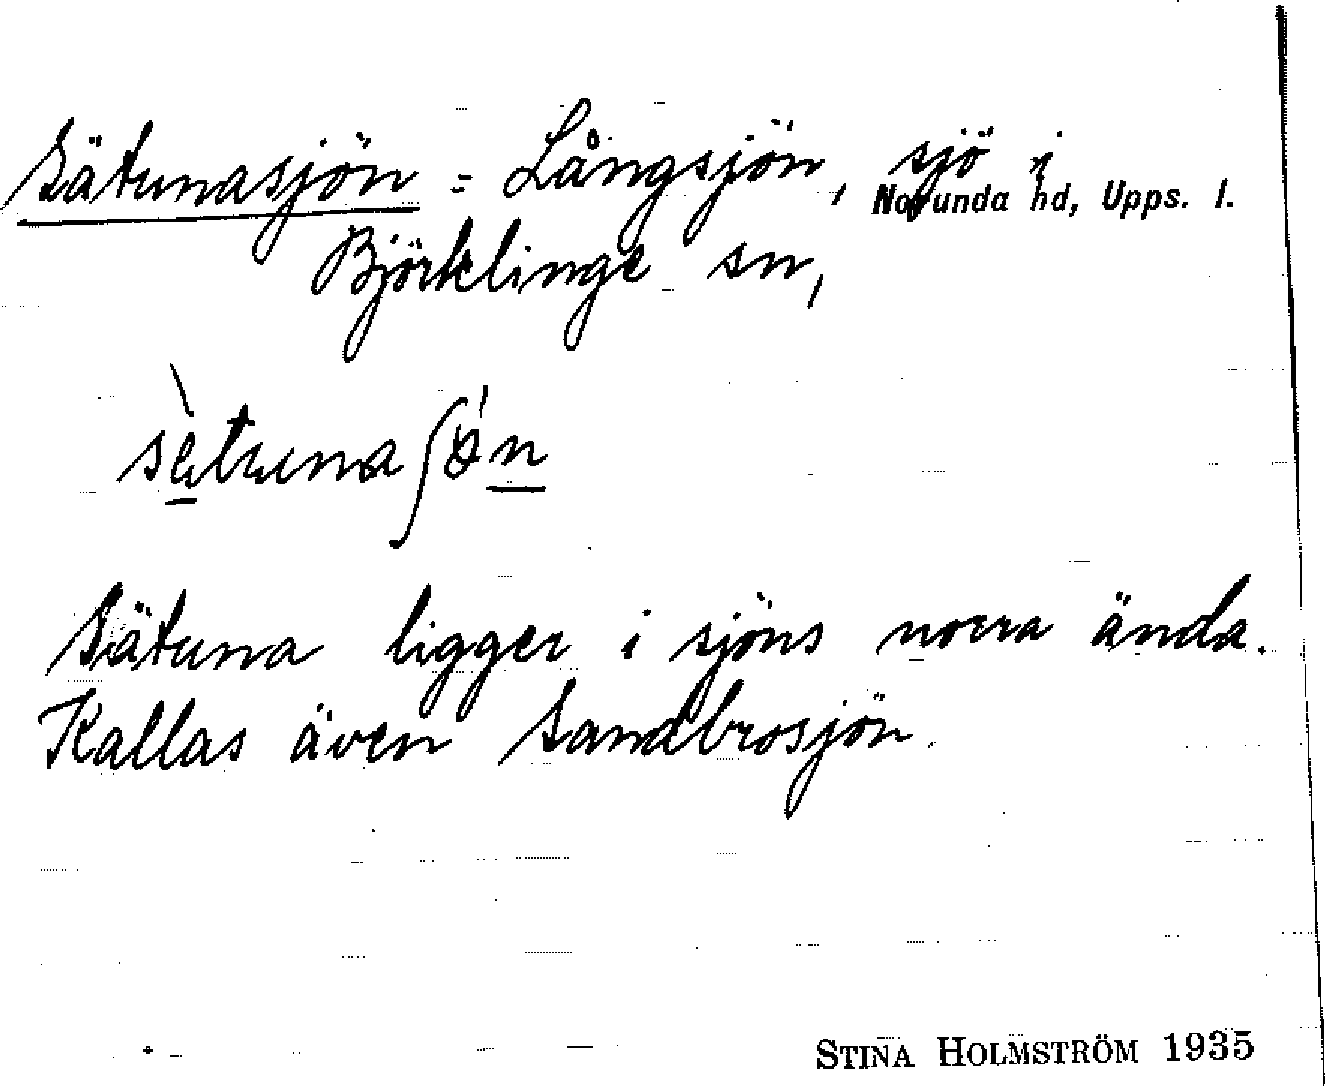 Sätunasjön = Långsjön, sjö i
Norunda hd, Upps. l.
Björklinge sn,
sètunaʃö́n
Sätuna ligger i sjöns norra ända.
Kallas även Sandbrosjön.
STINA HOLMSTRÖM 1935